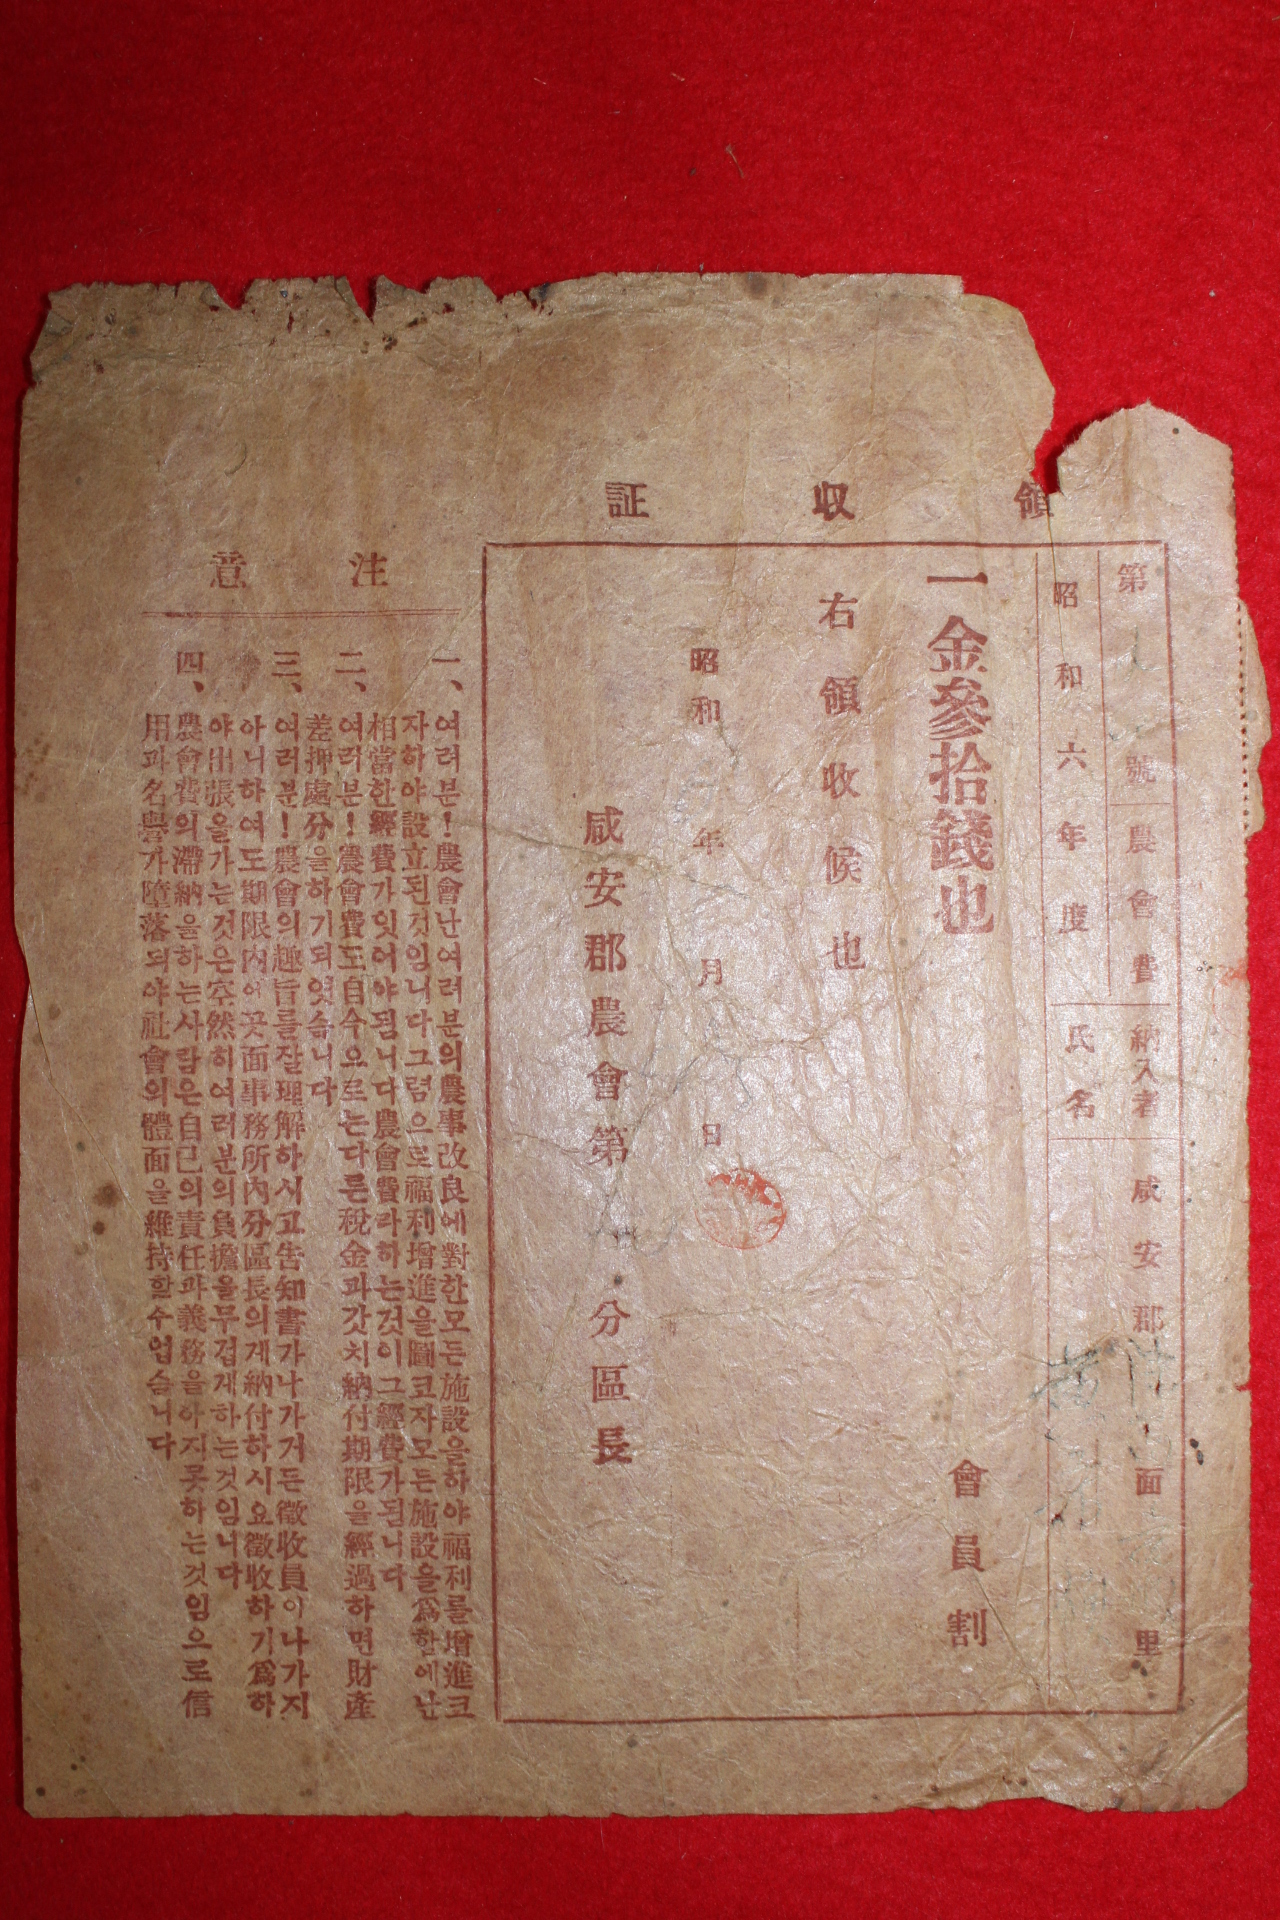 領收証
第 號 農會費 納入者 咸安郡 面 里
昭和六年度 氏名
一金參拾錢也 會員割
右領收候也
昭和 年 月 日
咸安郡農會第 分區長
注意
一、여러분!農會난여러분의農事改良에對한모든施設을하야福利를增進코
자하야設立된것임니다그럼으로福利增進을圖코자모든施設을爲함에난
相當한經費가잇어야됨니다農會費라하는것이그經費가됨니다
二、여러분!農會費도自今으로는다른稅金과갓치納付期限을經過하면財產
差押處分을하기되엿슴니다
三、여러분!農會의趣旨를잘理解하시고告知書가나가거든徵收員이나가지
아니하여도期限內에곳面事務所內分區長의게納付하시요徵收하기爲하
야出張을가는것은空然히여러분의負擔을무겁게하는것임니다
四、農會費의滯納을하는사람은自己의責任과義務을아지못하는것임으로信
用과名譽가墮落되야社會의體面을維持할수업슴니다